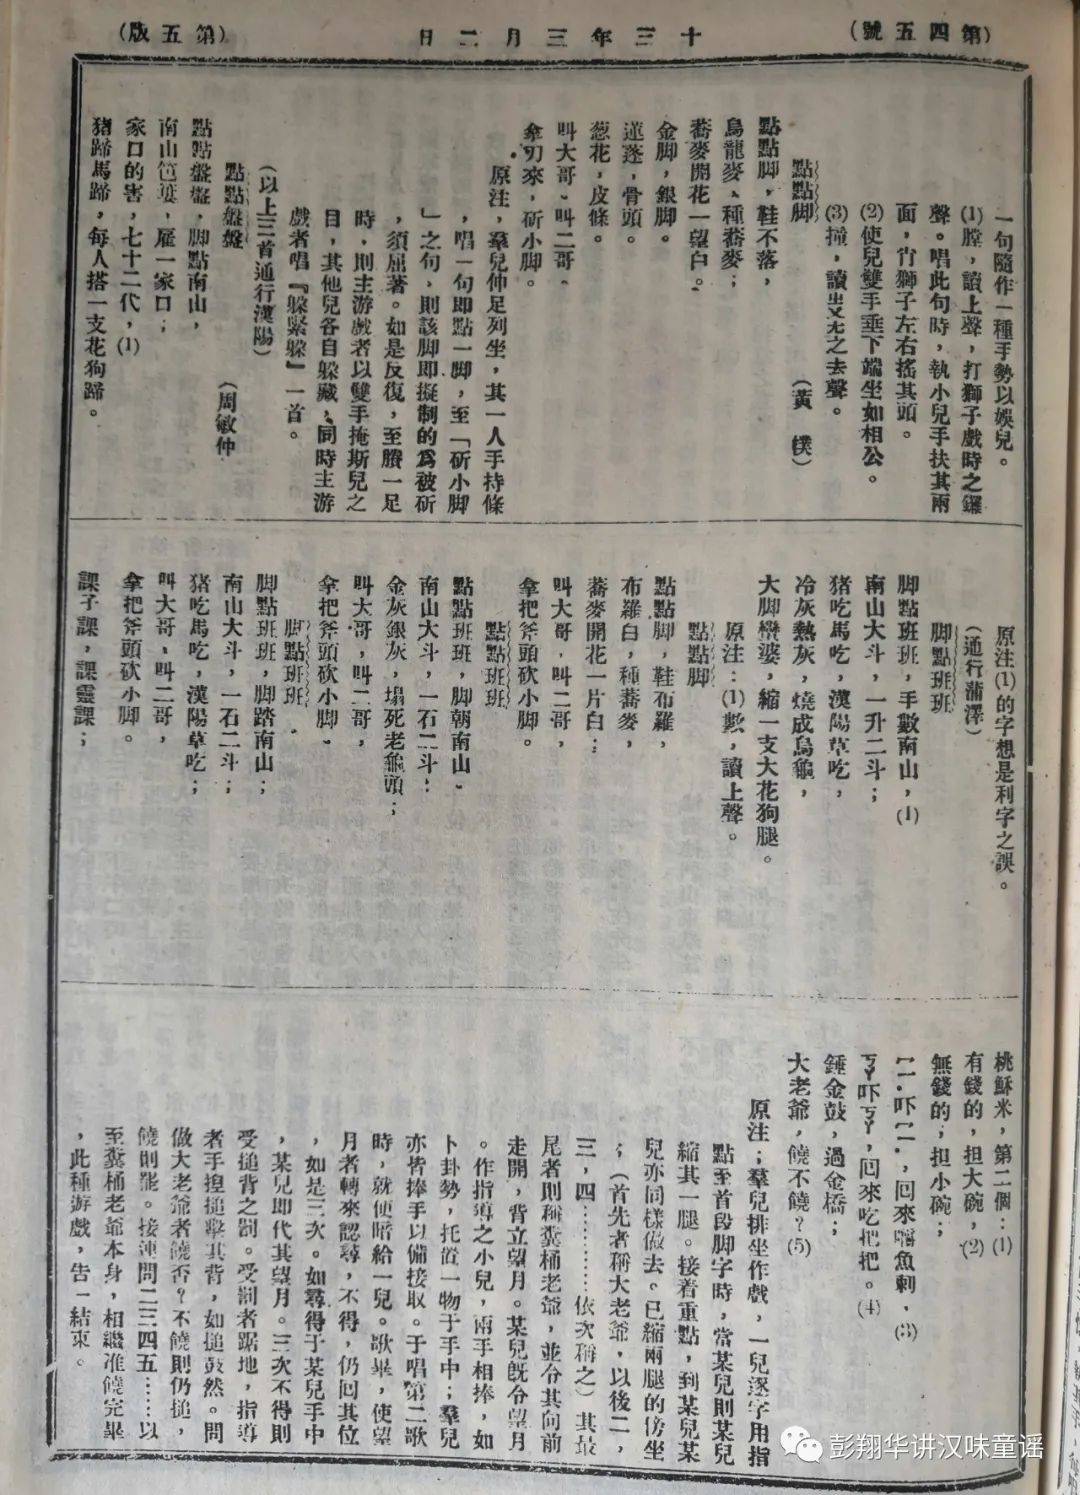 (第四五號)
十三年三月二日
(第五版)
一句隨作一種手勢以娛兒。
(1)膛，讀上聲，打獅子戲時之鑼
聲。唱此句時，執小兒手扶其兩
面，肖獅子左右搖其頭。
(2)使兒雙手垂下端坐如相公。
(3)撞，讀ㄓㄨㄤ之去聲。
點點脚 (黃樸)
點點脚，鞋不落，
烏龍麥、種蕎麥；
蕎麥開花一望白。
金脚，銀脚。
蓮蓬，骨頭。
葱花，皮條。
叫大哥、叫二哥、
拿刀來，斫小脚。
原注，羣兒伸足列坐，其一人手持條
，唱一句即點一脚，至「斫小脚
」之句，則該脚即擬制的爲被斫
，須屈著。如是反復，至賸一足
時，則主游戲者以雙手掩斯兒之
目，其他兒各自躲藏，同時主游
戲者唱『躲緊躲』一首。
(以上三首通行漢陽)
點點盤盤 (周敏仲
點點盤盤，脚點南山，
南山笆簍，雁一家口；
家口的害，七十二代，(1)
猪蹄馬蹄，每人搭一支花狗蹄。
原注(1)的字想是利字之誤。
(通行蒲澤)
脚點班班
脚點班班，手數南山，(1)
南山大斗，一升二斗；
猪吃馬吃，漢陽草吃，
冷灰熱灰，燒成烏龜，
大脚蠻婆，縮一支大花狗腿。
原注：(1)數，讀上聲。
點點脚
點點脚，鞋布羅，
布羅白，種蕎麥，
蕎麥開花一片白；
叫大哥，叫二哥，
拿把斧頭砍小脚。
點點班班
點點班班，脚朝南山、
南山大斗，一石二斗：
金灰銀灰，塌死老龜頭；
叫大哥，叫二哥，
拿把斧頭砍小脚、
脚點班班
脚點班班，脚踏南山；
南山大斗，一石二斗；
猪吃馬吃，漢陽草吃；
叫大哥、叫二哥，
拿把斧頭砍小脚。
課子課，課靈課；
桃穌米，第二個：(1)
有錢的，担大碗，(2)
無錢的；担小碗；
回來嚼魚刺、(3)
ㄎㄚ吓ㄎㄚ，回來吃把把。(4)
錘金鼓，過金橋；
大老爺，饒不饒？(5)
原注；羣兒排坐作戲，一兒逐字用指
點至首段脚字時，當某兒則某兒
縮其一腿。接着重點，到某兒某
兒亦同樣做去。已縮兩腿的傍坐
；(首先者稱大老爺，以後二，
三，四…………依次稱之)其最
尾者則稱糞桶老爺，並令其向前
走開，背立望月。某兒既令望月
。作指導之小兒，兩手相捧，如
卜卦勢，托置一物于手中；羣兒
亦皆捧手以備接取。于唱第二歌
時，就便暗給一兒。歌畢，使望
月者轉來認尋，不得，仍回其位
，如是三次。如尋得于某兒手中
，某兒即代其望月。三次不得則
受搥背之罰。受罰者踞地，指導
者手揑搥擊其背，如搥鼓然。問
做大老爺者饒否？不饒則仍搥，
饒則罷。接連問二三四五……以
至糞桶老爺本身，相繼准饒完畢
，此種游戲，告一結束。
彭翔华讲汉味童谣